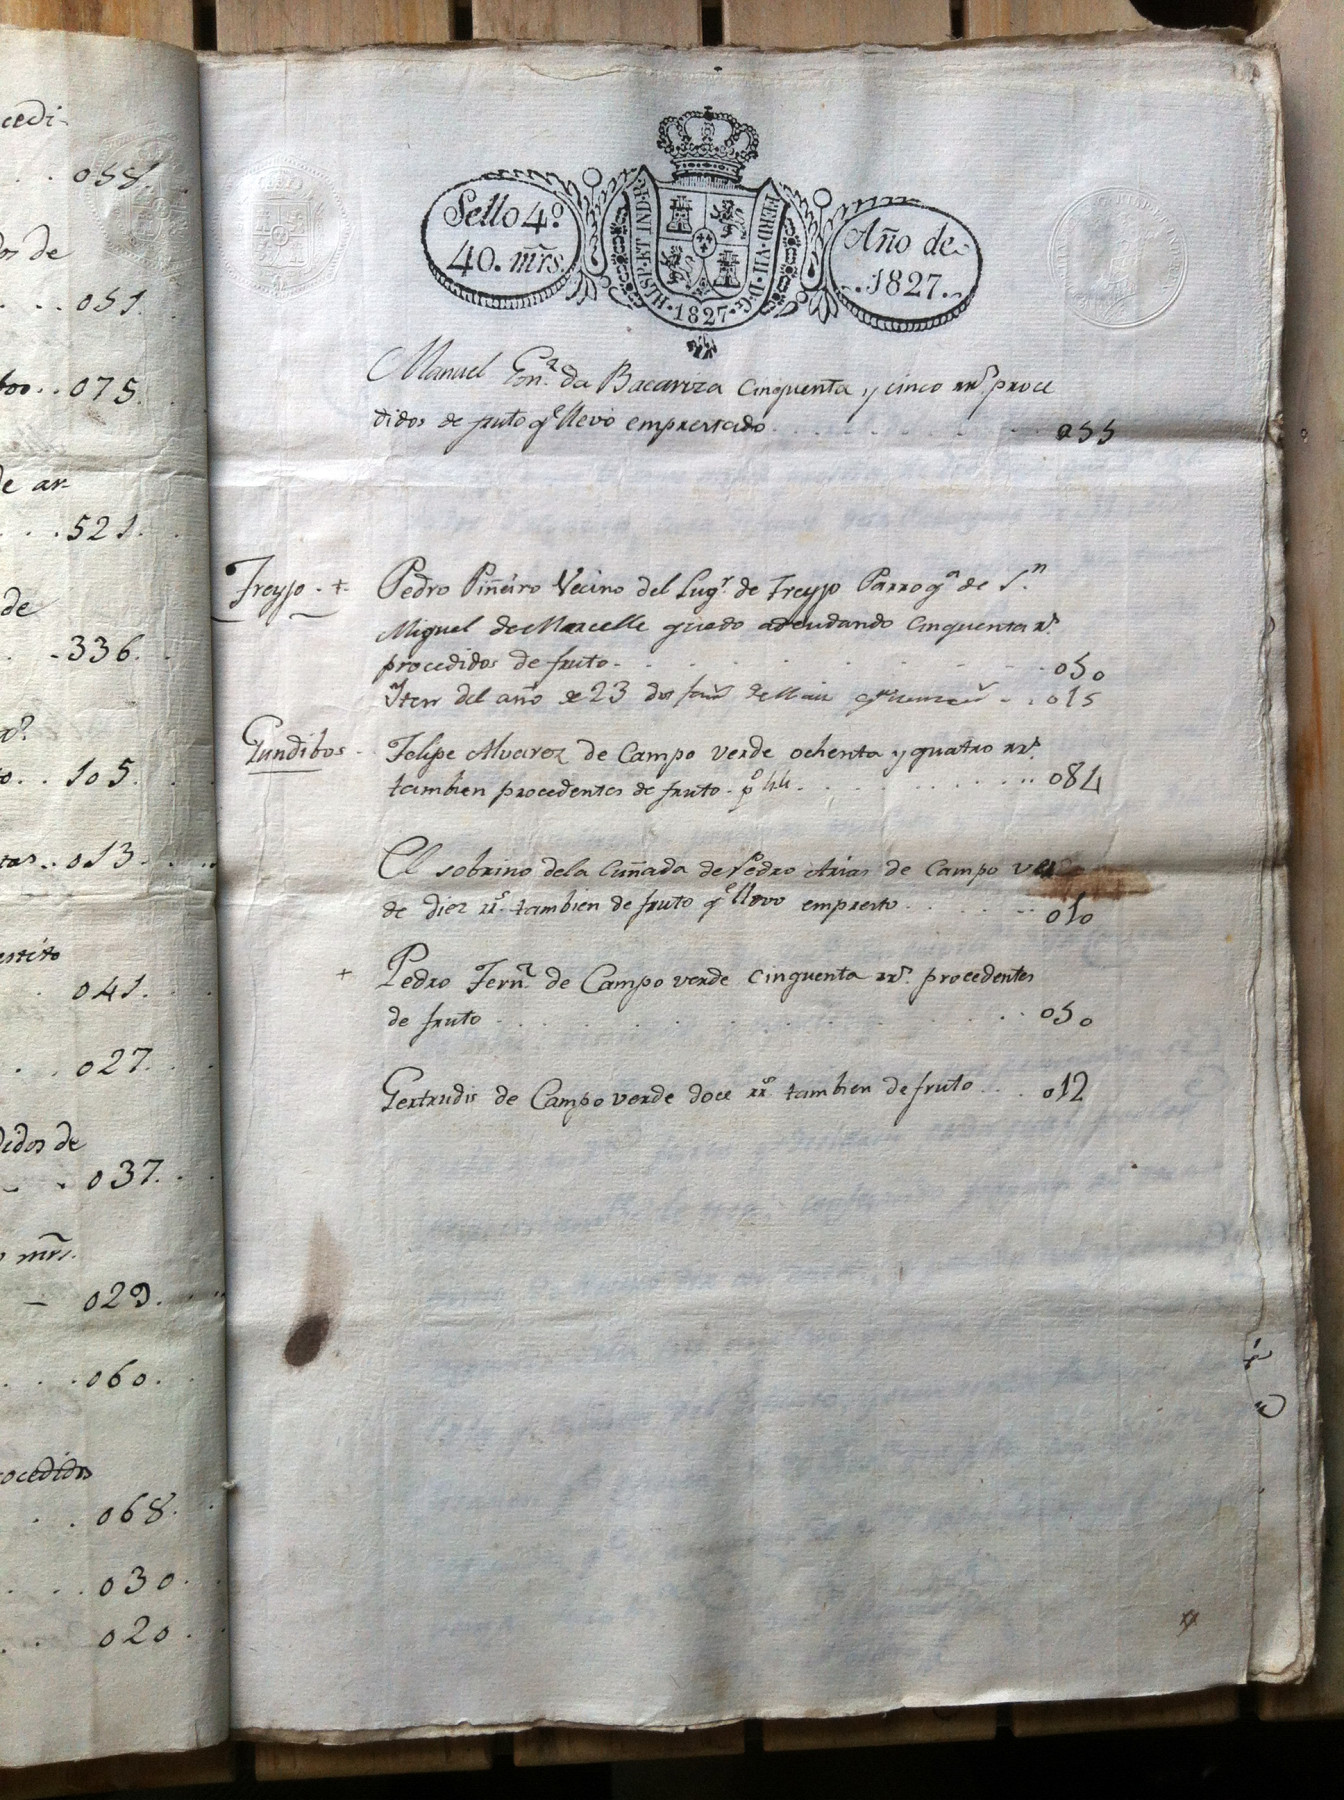 cedi-
. . 058.
os de
. . . 051.
. . 075.
de ar-
. . 521.
de
. -336.
. . 105.
. . 013.
041.
. . 027.
didos de
. 037.
mrs.
– 029.
. . . 060.
ocedidos
. . 068.
. . . 030.
. . 020.
Sello 4º.
40. mrs.
HISP. ET IND. R.
FERD. VII. D. G.
· 1827 ·
Año de
1827.
Manuel Gonz. da Bacariza cinquenta y cinco rrs. proce
didos de fruto qe. llevó emprestado . . . . . 055
Freyjo. + Pedro Piñeiro Vecino del Lugr. de Freyjo Parroqa. de Sn.
Miguel de Marcelle quedo adeudando cinquenta rs.
procedidos de fruto . . . . . . 050
Iten del año de 23 dos . . 015
Gundibos - Felipe Alvarez de Campo verde ochenta y quatro rrs.
tambien procedentes de fruto . . . . . 084
El sobrino dela Cuñada de Pedro Arias de Campo ver
de diez rs. tambien de fruto qe. llevo empresto . . . . 010
+ Pedro Fernz. de Campo verde cinquenta rrs. procedentes
de fruto . . . . . . . . 050
Gertrudis de Campo verde doce rrs. tambien de fruto . . . 012